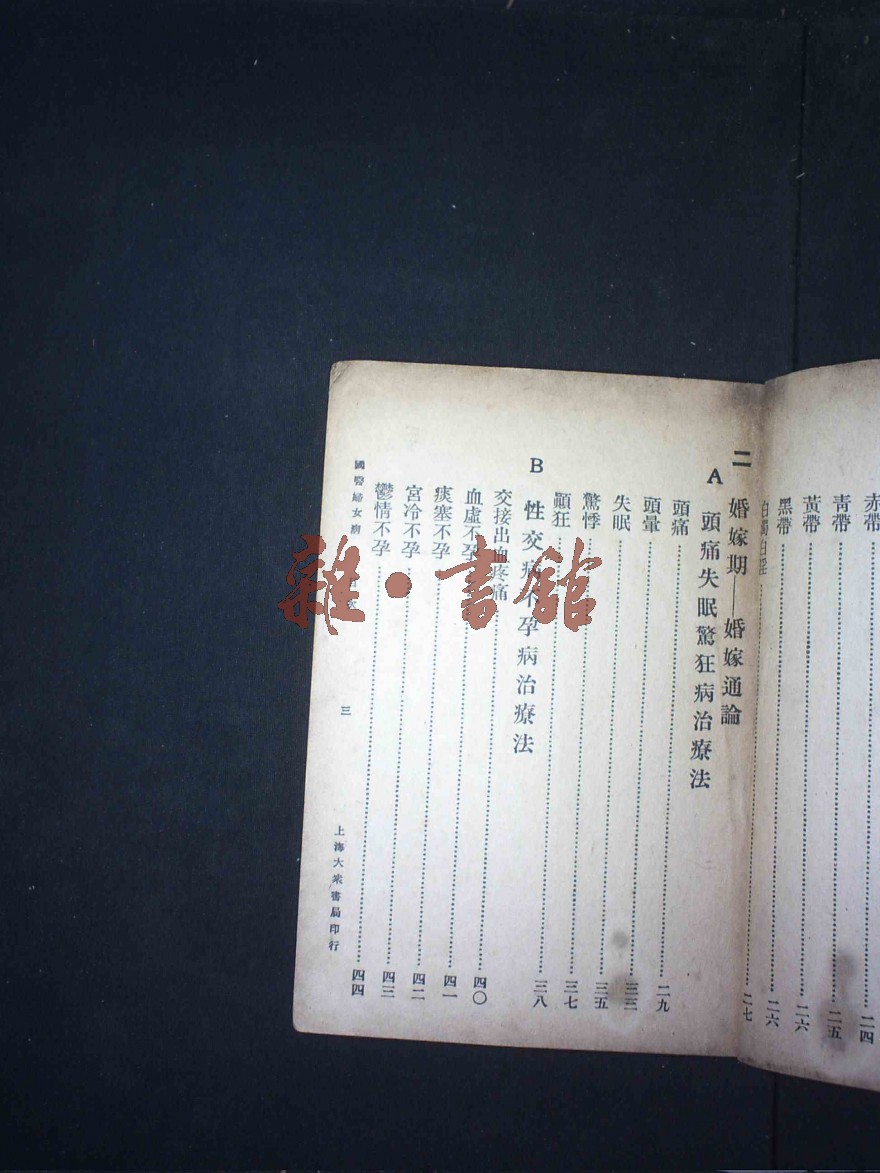 赤帶……二四
青帶……二五
黃帶……二六
黑帶……二六
白濁白淫……二七
二 婚嫁期——婚嫁通論
A 頭痛失眠驚狂病治療法
頭痛……二九
頭暈……三三
失眠……三五
驚悸……三七
顚狂……三八
B 性交病不孕病治療法
交接出血疼痛……四〇
血虛不孕……四一
痰塞不孕……四二
宮冷不孕……四三
鬱情不孕……四四
國醫婦女病
三
上海大衆書局印行
雜·書館